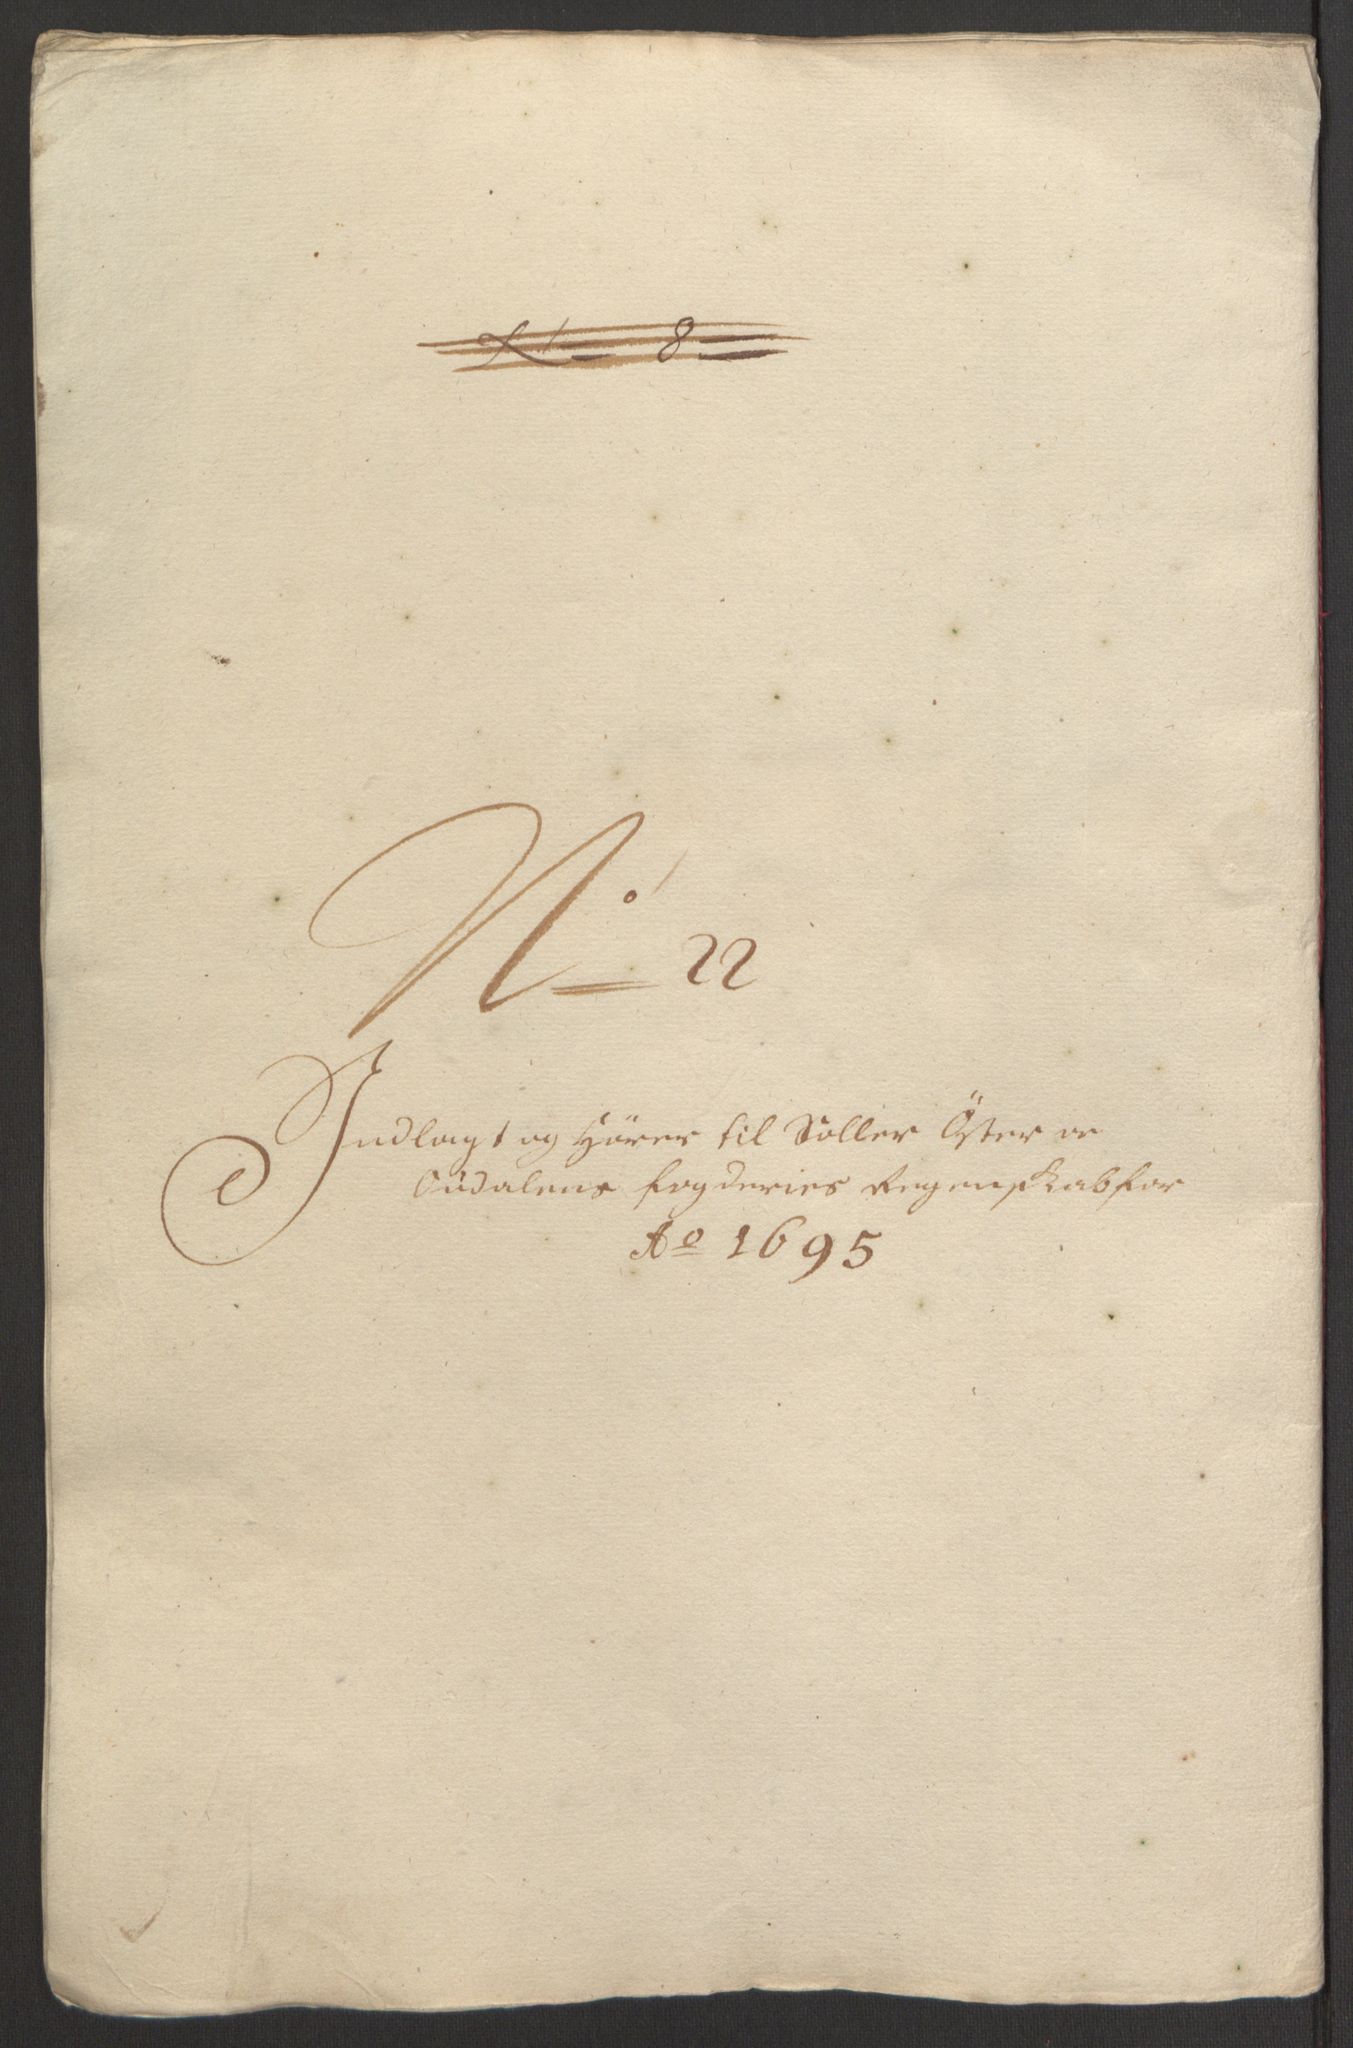 N 8
No 22
Indlagt og Hörer til Soller Öster oc
Oüdalens fogderies Regenskab for
Ao 1695